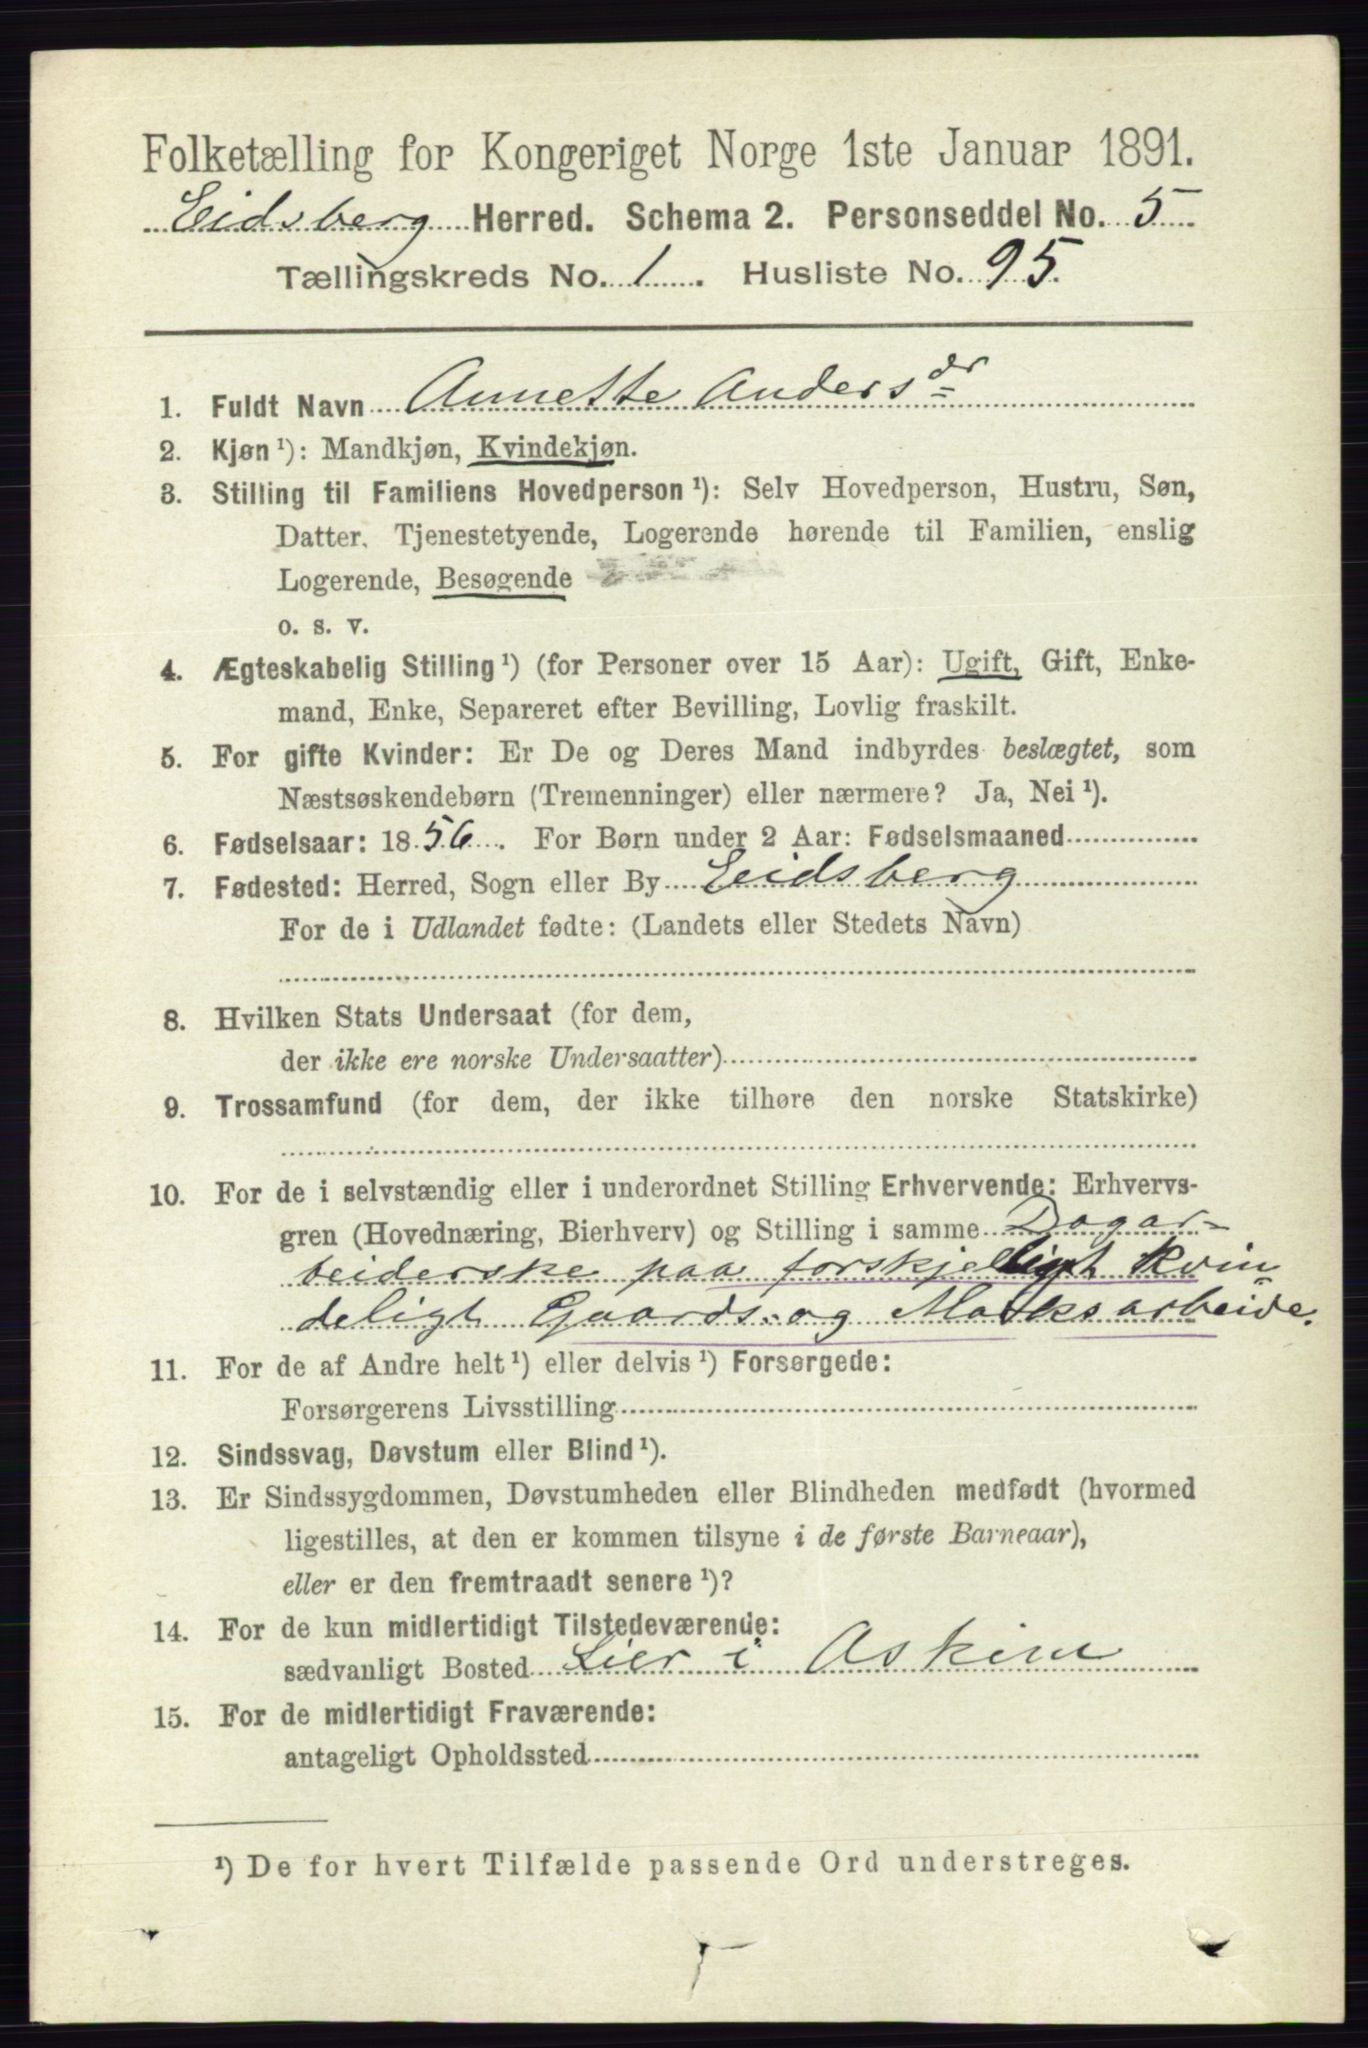 Folketælling for Kongeriget Norge 1ste Januar 1891.
Eidsberg Herred. Schema 2. Personseddel No. 5
Tællingskreds No. 1. Husliste No. 95.
1. Fuldt Navn Annette Andersdr
2. Kjøn ¹): Mandkjøn, Kvindekjøn.
3. Stilling til Familiens Hovedperson ¹): Selv Hovedperson, Hustru, Søn,
Datter, Tjenestetyende, Logerende hørende til Familien, enslig
Logerende, Besøgende
o. s. v.
4. Ægteskabelig Stilling ¹) (for Personer over 15 Aar): Ugift, Gift, Enke-
mand, Enke, Separeret efter Bevilling, Lovlig fraskilt.
5. For gifte Kvinder: Er De og Deres Mand indbyrdes beslægtet, som
Næstsøskendebørn (Tremenninger) eller nærmere? Ja, Nei ¹).
6. Fødselsaar: 1856. For Børn under 2 Aar: Fødselsmaaned
7. Fødested: Herred, Sogn eller By Eidsberg
For de i Udlandet fødte: (Landets eller Stedets Navn)
8. Hvilken Stats Undersaat (for dem,
der ikke ere norske Undersaatter)
9. Trossamfund (for dem, der ikke tilhøre den norske Statskirke)
10. For de i selvstændig eller i underordnet Stilling Erhvervende: Erhvervs-
gren (Hovednæring, Bierhverv) og Stilling i samme Dagar-
beiderske paa forskjelligt kvin
deligt Gaards- og Marksarbeide.
11. For de af Andre helt ¹) eller delvis ¹) Forsørgede:
Forsørgerens Livsstilling
12. Sindssvag, Døvstum eller Blind ¹).
13. Er Sindssygdommen, Døvstumheden eller Blindheden medfødt (hvormed
ligestilles, at den er kommen tilsyne i de første Barneaar),
eller er den fremtraadt senere ¹)?
14. For de kun midlertidigt Tilstedeværende:
sædvanligt Bosted Lier i Askim
15. For de midlertidigt Fraværende:
antageligt Opholdssted
¹) De for hvert Tilfælde passende Ord understreges.